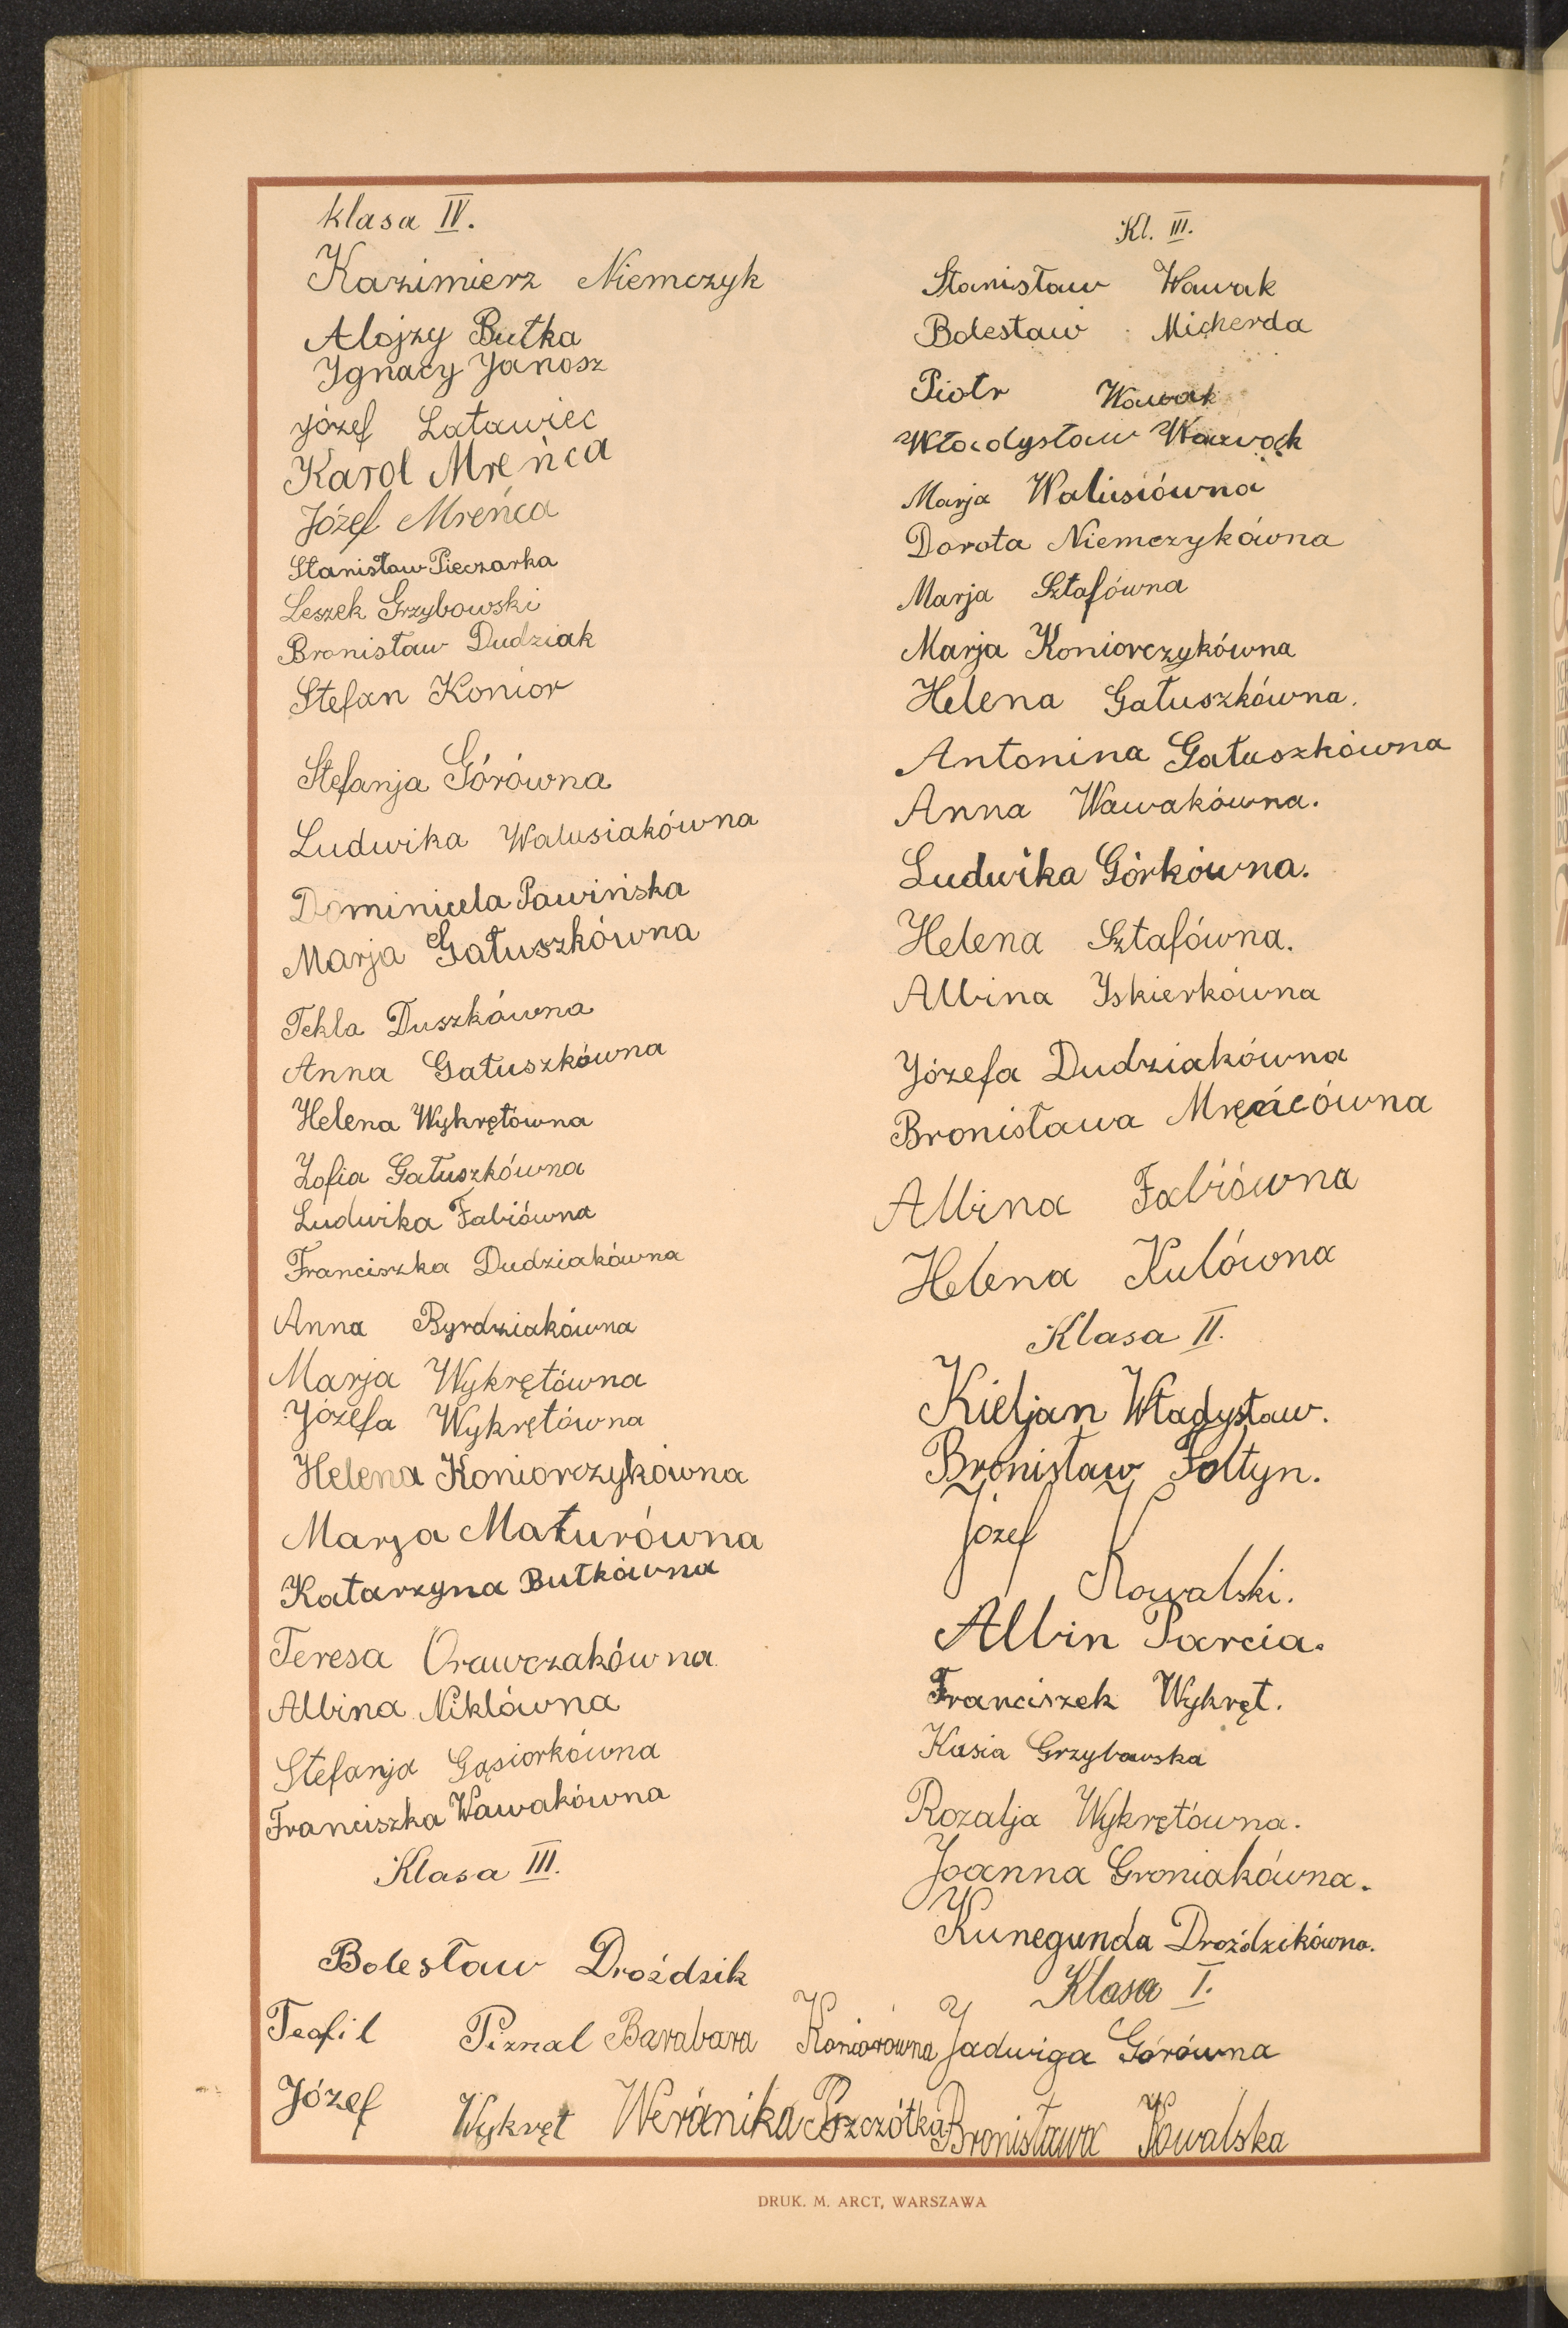 klasa IV.
Kazimierz Niemczyk
Alojzy Butka
Ignacy Janosz
Józef Latawiec
Karol Mreńca
Józef Mreńca
Stanisław Pieczarka
Leszek Grzybowski
Bronisław Dudziak
Stefan Konior
Stefanja Górówna
Ludwika Walusiakówna
Dominicela Pawińska
Marja Gałuszkówna
Tekla Duszkówna
Anna Gałuszkówna
Helena Wykrętówna
Zofia Gałuszkówna
Ludwika Fabiówna
Franciszka Dudziakówna
Anna Byrdziakówna
Marja Wykrętówna
Józefa Wykrętówna
Helena Koniorczykówna
Marja Maturówna
Katarzyna Butkówna
Teresa Orawczakówna
Albina Niklówna
Stefanja Gąsiorkówna
Franciszka Wawakówna
Klasa III.
Bolesław Droździk
Teofil Piznal
Józef Wykręt
Barabara Koniorówna
Weranika Pszczółka
Kl. III.
Stanisław Wawak
Bolesław Micherda
Piotr Wawak
Władysław Wawak
Marja Walusiówna
Dorota Niemczykówna
Marja Sztafówna
Marja Koniorczykówna
Helena Gałuszkówna.
Antonina Gałuszkówna
Anna Wawakówna.
Ludwika Górkówna.
Helena Sztafówna.
Albina Iskierkówna
Józefa Dudziakówna
Bronisława
Albina Fabiówna
Helena Kulówna
Klasa II.
Kieljan Władysław.
Bronisław Fołtyn.
Józef
Kowalski.
Albin Parcia.
Franciszek Wykręt.
Kasia Grzybowska
Rozalja Wykrętówna.
Joanna Groniakówna.
Kunegunda Droździkówna.
Klasa I.
Jadwiga Górówna
Bronisława Kowalska
DRUK. M. ARCT, WARSZAWA